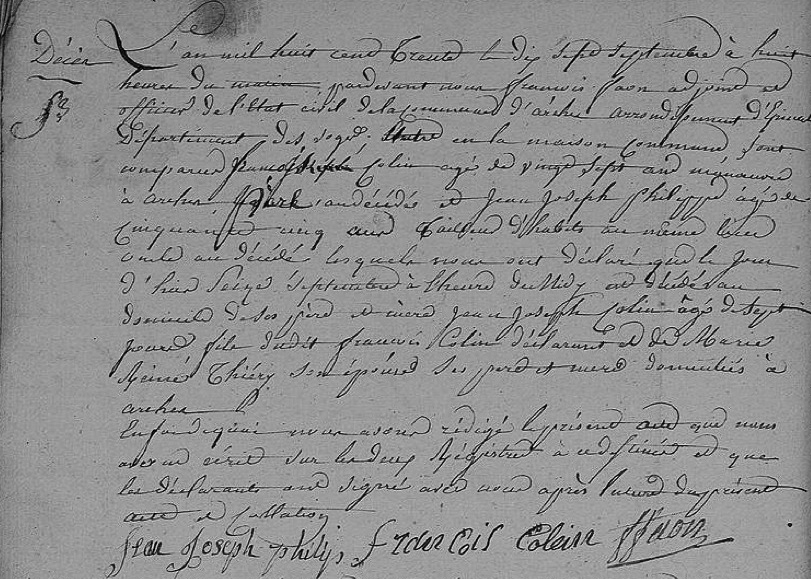 Décès
L'an mil huit cent trente le dix sept septembre à huit
heures du matin pardevant nous françois faon adjoint et
officier de l'Etat civil de la commune d'arches arrondissement d'Epinal
Département des vosges, en la maison commune sont
comparus françois Colin agé de vingt sept ans manœuvre
à arches père au décédé et Jean Joseph philippe âgé de
Cinquante cinq ans tailleur d'habits au même lieu
oncle au décédé lesquels nous ont déclaré que le jour
d'hier Seize Septembre à l'heure de Midy est décédé au
domicile de ses père et mère Jean Joseph Colin âgé de sept
jours fils dudit françois Colin déclarant et de Marie
Reine Thiéry son épouse ses père et mere domiciliés à
arches
En foi de quoi nous avons rédigé le présent acte que nous
avons écrit sur les deux Régistres à ce destinés et que
les déclarants ont signé avec nous après lecture du présent
acte et Collation
Jean Joseph philip francois Colein ffaon